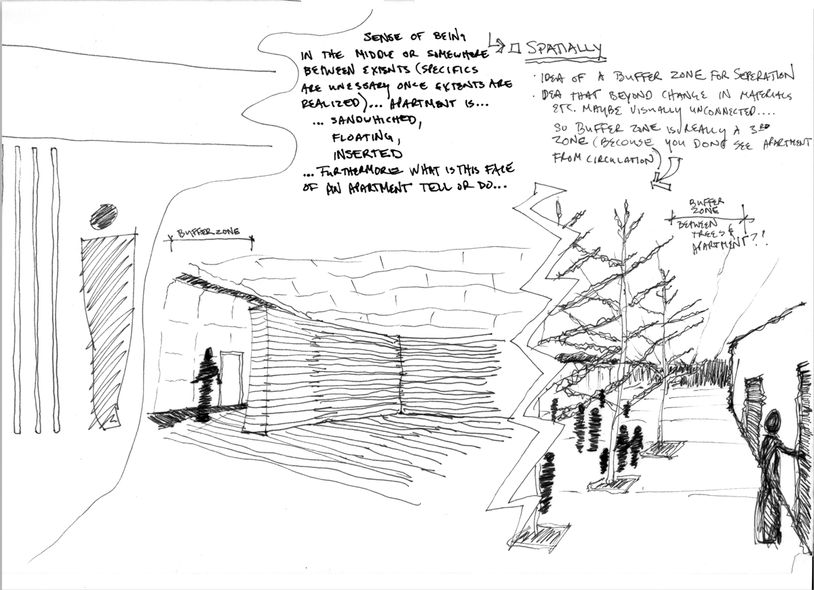 SENSE OF BEING
IN THE MIDDLE OR SOMEWHERE
BETWEEN EXTENTS (SPECIFICS
ARE UNESSARY ONCE EXTENTS ARE
REALIZED)... APARTMENT IS...
... SANDWHICHED,
FLOATING,
INSERTED
...FURTHERMORE WHAT IS THIS FACE
OF AN APARTMENT TELL OR DO...
SPATIALLY
· IDEA OF A BUFFER ZONE FOR SEPERATION
· IDEA THAT BEYOND CHANGE IN MATERIALS
ETC. MAYBE VISUALLY UNCONNECTED....
SO BUFFER ZONE IS REALLY A 3RD
ZONE (BECAUSE YOU DONT SEE APARTMENT
FROM CIRCULATION)
BUFFER ZONE
BUFFER
ZONE
BETWEEN
TREES &
APARTMENT?!